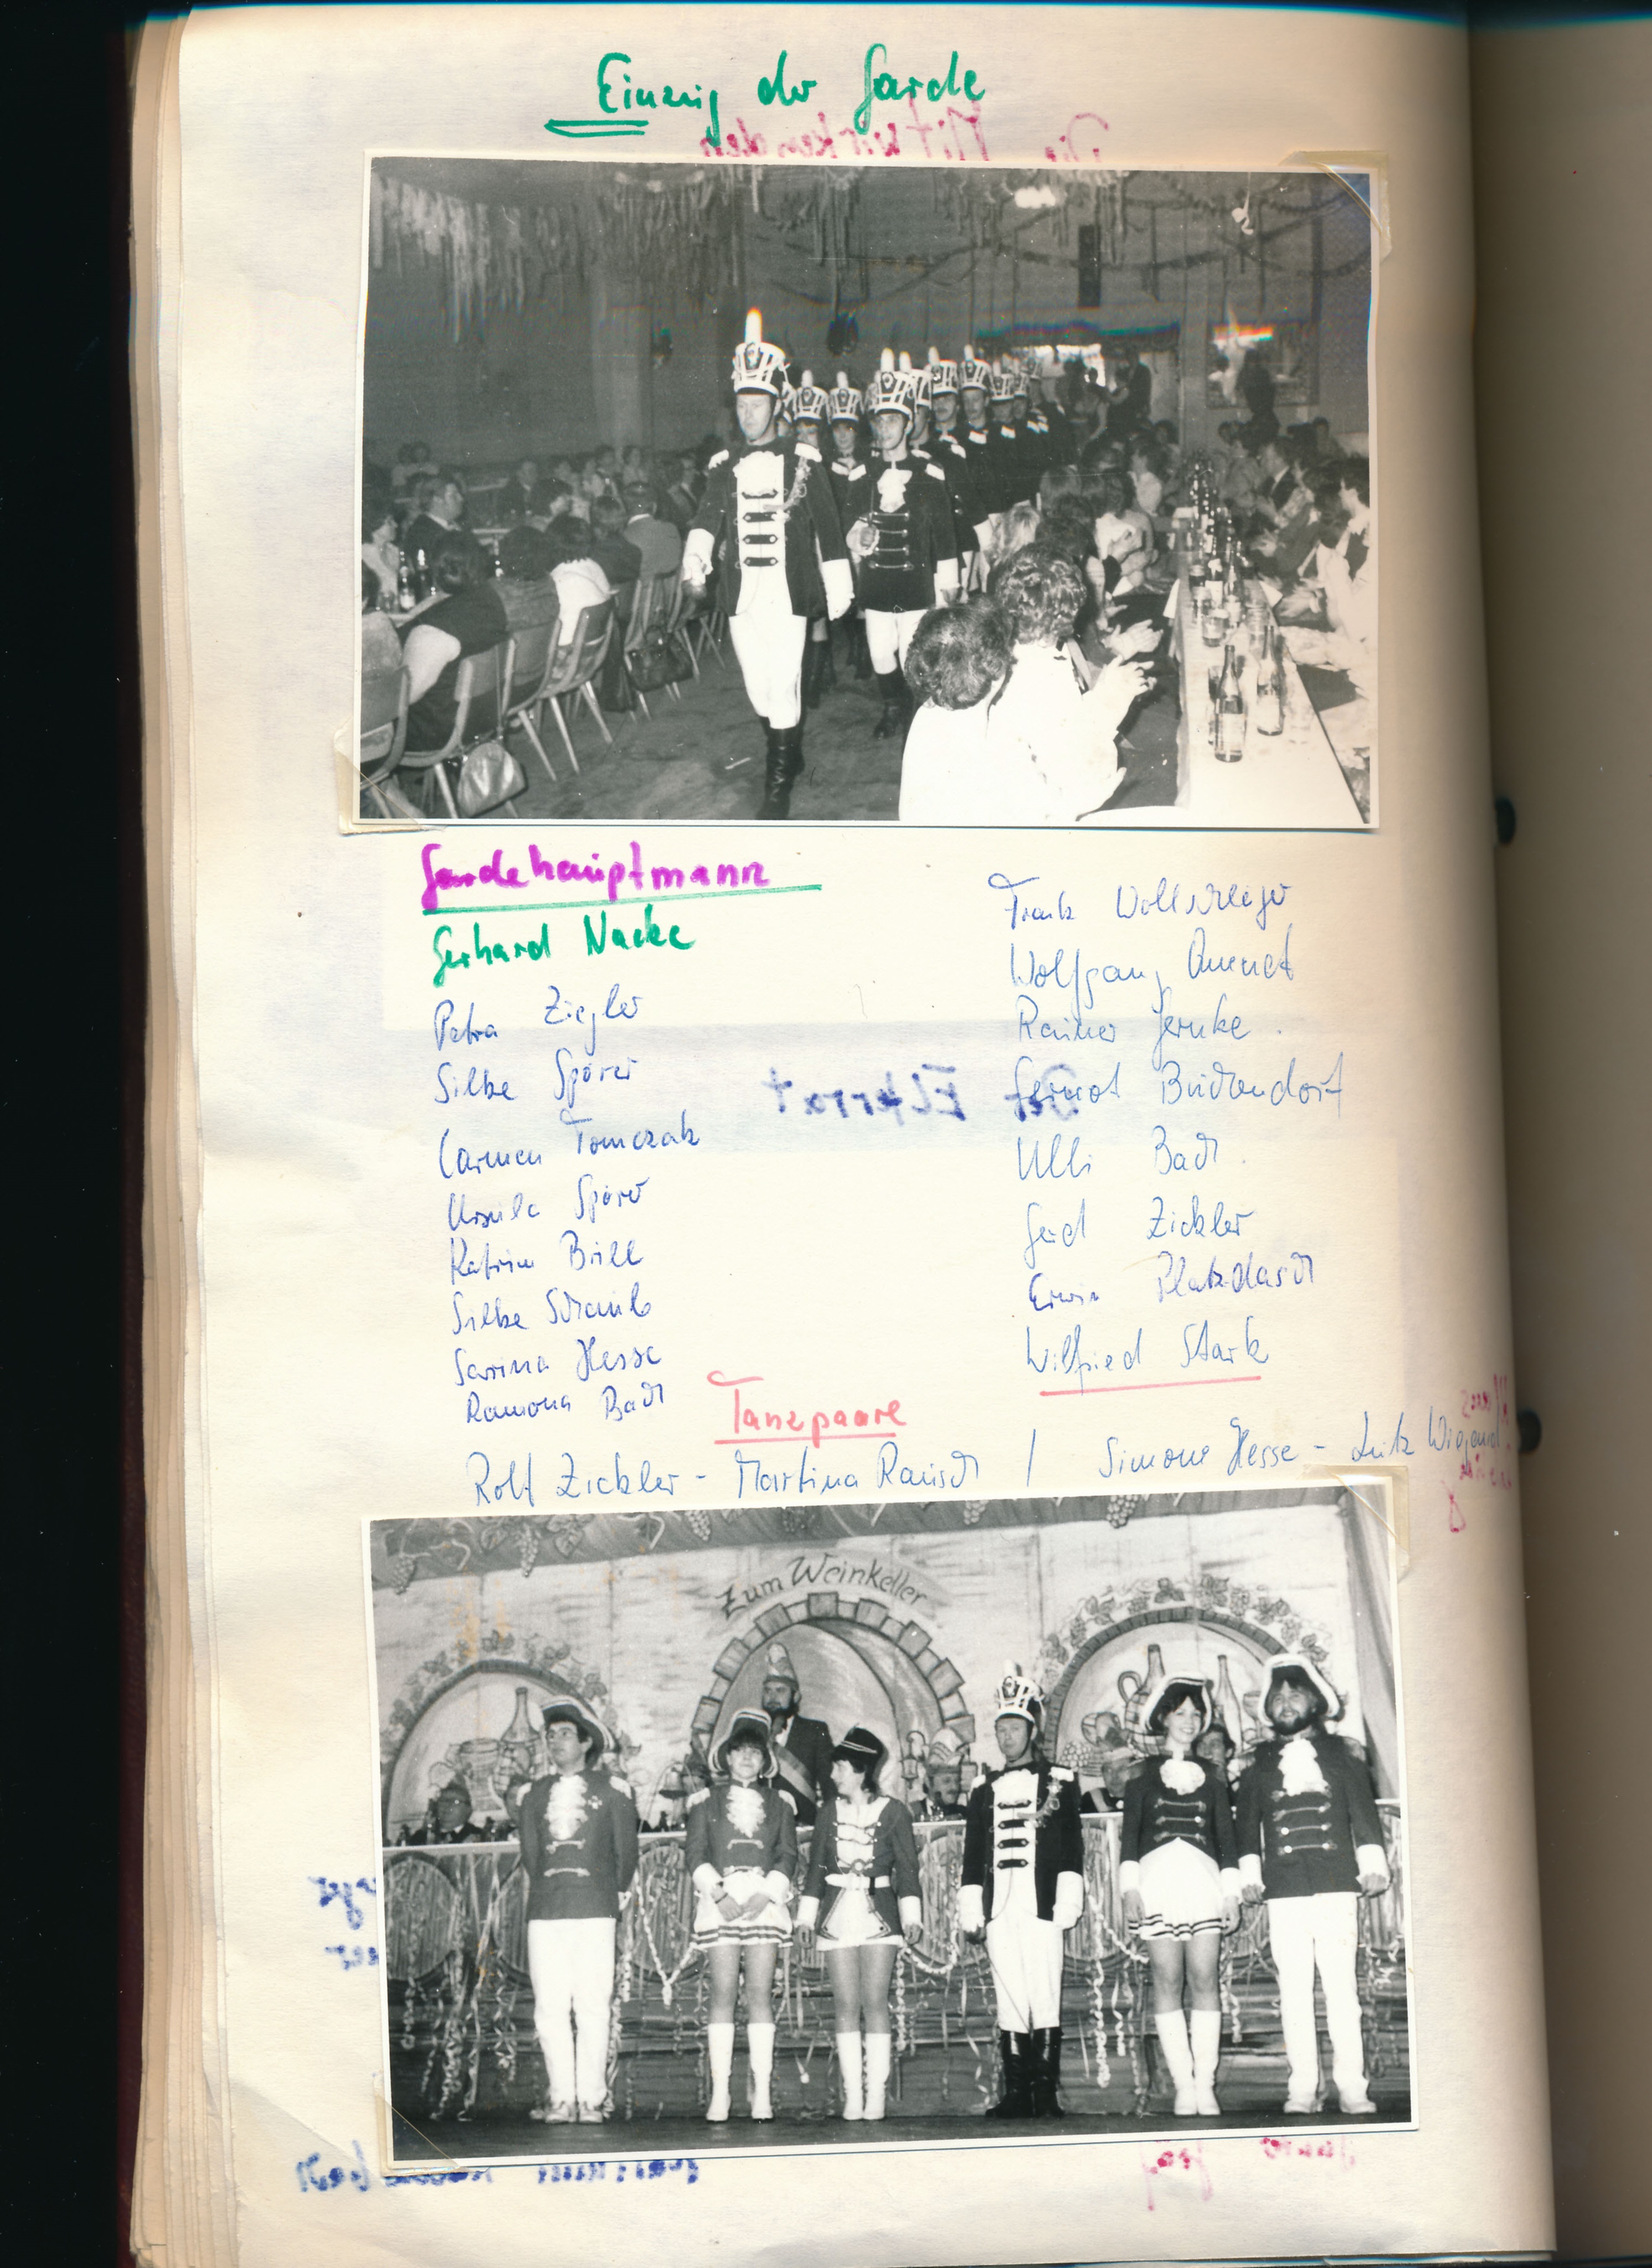 Einzug der Garde
Gardehauptmann
Gerhard Nacke
Petra Ziegler
Silke Spörer
Carmen Tomczak
Ursula Spörer
Katrin Brill
Silke
Sarina Hesse
Ramona Bach
Frank Wollschläger
Wolfgang
Rainer Jernke
Gernot
Ulli Bach
Gerd Zickler
Erwin Platzdasch
Wilfried Stark
Tanzpaare
Rolf Zickler - Martina Rausch / Simone Hesse - Lutz Wiegand
Zum Weinkeller
Die Mitwirkenden
Der Elferrat